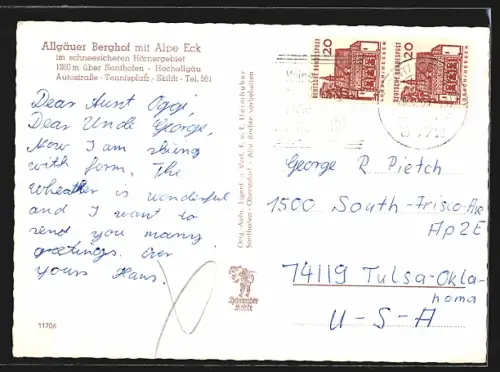 Allgäuer Berghof mit Alpe Eck
im schneesicheren Hörnergebiet
1260 m über Sonthofen - Hochallgäu
Autostraße - Tennisplatz - Skilift - Tel. 561
Dear Aunt Oggi,
Dear Uncle George,
Now I am skiing
with form. The
wheater is wonderful
and I want to
send you many
greetings. ever
yours Hans.
11706
Orig.-Aufn. Eigent. u. Verl. F. u. E. Heimhuber
Sonthofen - Oberstdorf - Alle Rechte vorbehalten
Heimhuber
Karte
DEUTSCHE BUNDESPOST
20
DEUTSCHE BUNDESPOST
20
George R Pietch
1500 South-Frisco-Av
Ap2E
74119 Tulsa-Okla-
homa
U-S-A